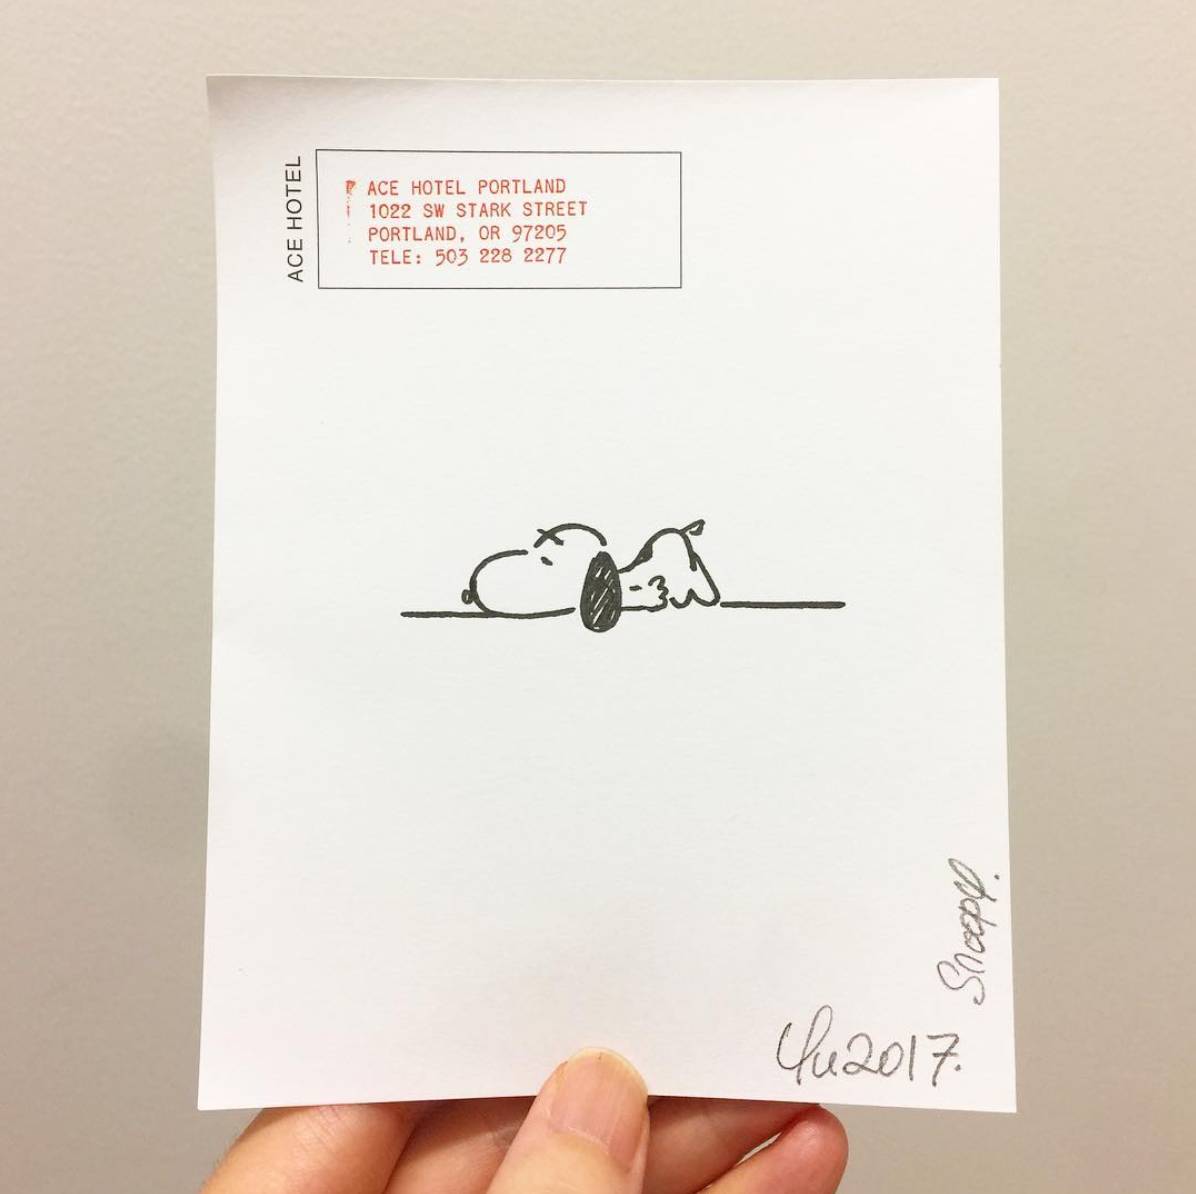 ACE HOTEL
ACE HOTEL PORTLAND
1022 SW STARK STREET
PORTLAND, OR 97205
TELE: 503 228 2277
Snoopy.
Yu2017.